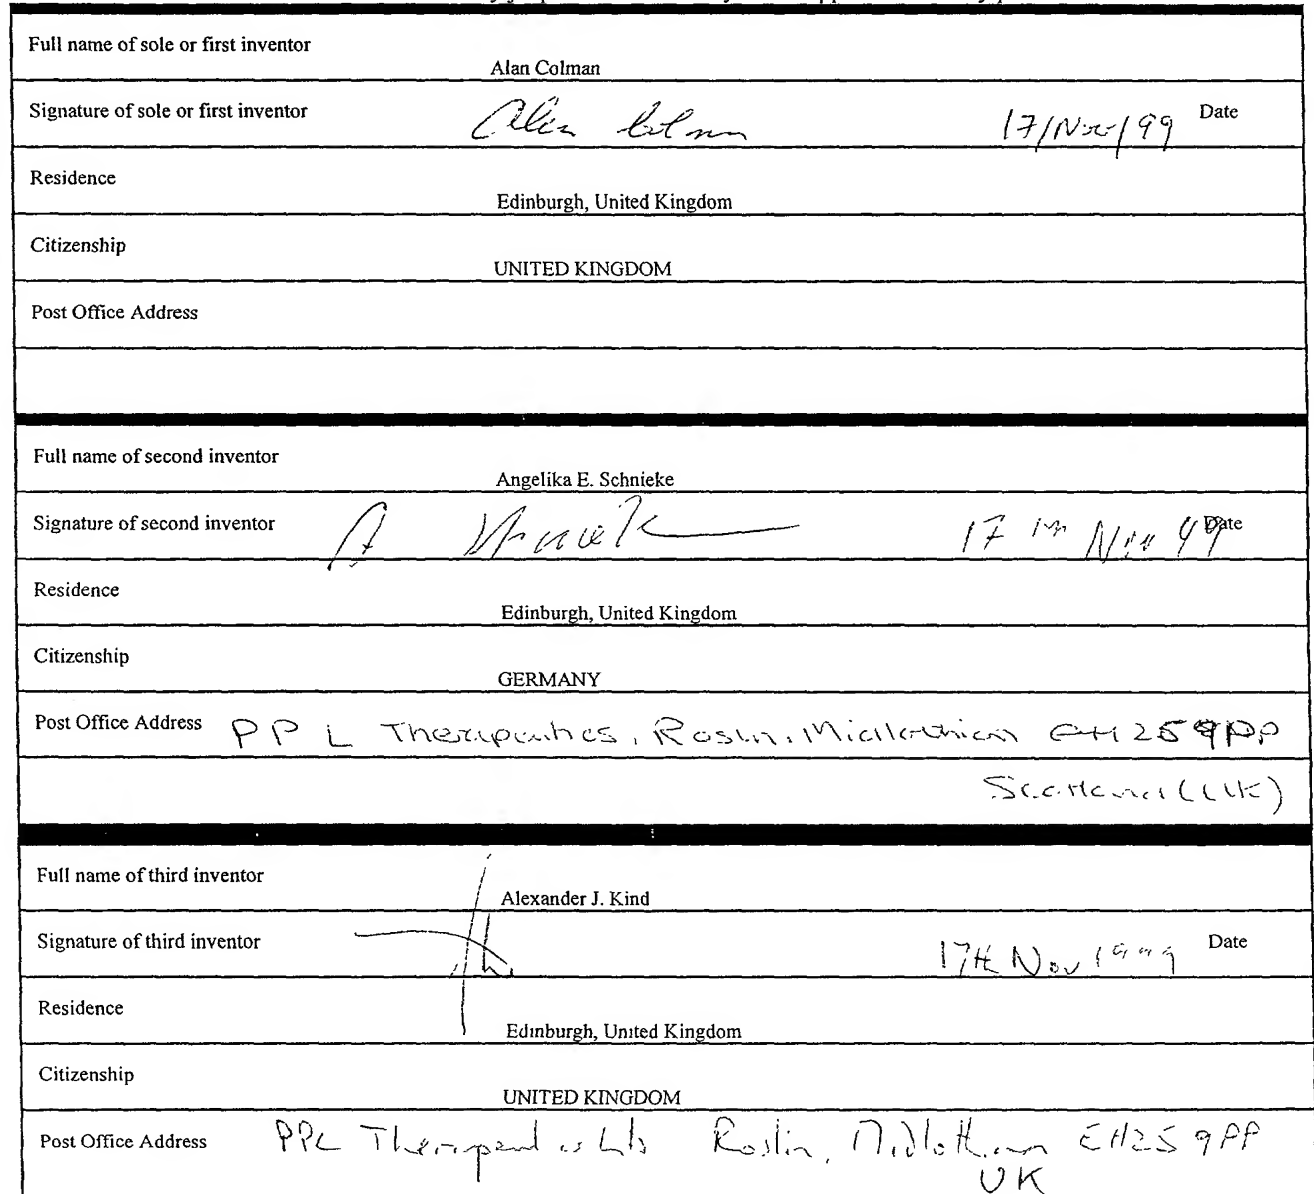 Full name of sole or first inventor
Alan Colman
Signature of sole or first inventor Alan Colman 17/Nov/99 Date
Residence
Edinburgh, United Kingdom
Citizenship
UNITED KINGDOM
Post Office Address
Full name of second inventor
Angelika E. Schnieke
Signature of second inventor A Schnieke 17th Nov 99 Date
Residence
Edinburgh, United Kingdom
Citizenship
GERMANY
Post Office Address PPL Therapeutics, Roslin, Midlothian EH25 9PP
Scotland (UK)
Full name of third inventor
Alexander J. Kind
Signature of third inventor 17th Nov 1999 Date
Residence
Edinburgh, United Kingdom
Citizenship
UNITED KINGDOM
Post Office Address PPL Therapeutics Roslin, Midlothian EH25 9PP
UK